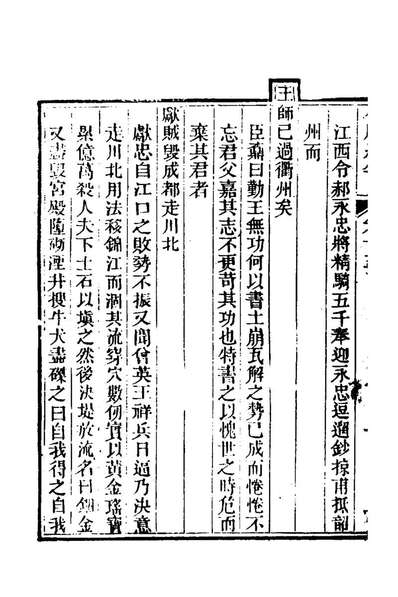 江西令郝永忠將精騎五千奉迎永忠逗遛鈔掠甫抵韶
州而
王師已過衢州矣
臣鼒曰勤王無功何以書土崩瓦解之勢已成而惓惓不
忘君父嘉其志不更苛其功也特書之以愧世之時危而
棄其君者
獻賊毀成都走川北
獻忠自江口之敗勢不振又聞曾英王祥兵日逼乃決意
走川北用法移錦江而涸其流穿穴數仞實以黃金瑤寶
累億萬殺人夫下土石以塡之然後決堤放流名曰錮金
又盡毀宮殿墮砌堙井搜牛犬盡磔之曰自我得之自我